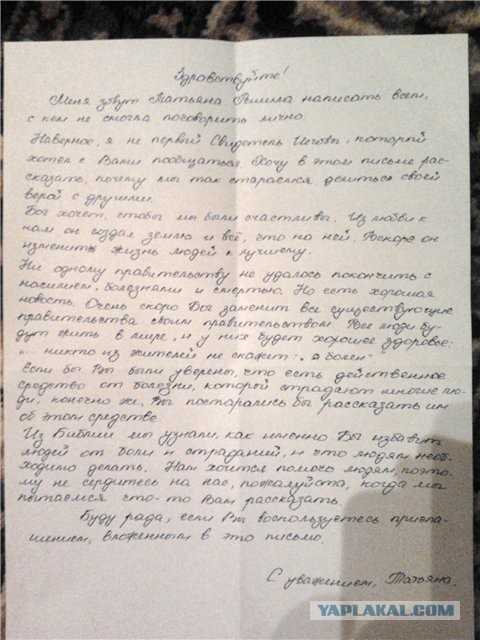 Здравствуйте!
Меня зовут Татьяна Решила написать всем,
с кем не смогла поговорить лично
Наверное, я не первый Свидетель Иеговы, который
хотел с Вами пообщаться Хочу в этом письме рас-
сказать, почему мы так стараемся делиться своей
верой с другими.
Бог хочет, чтобы мы были счастливы. Из любви к
нам он создал землю и всё, что на ней. Вскоре он
изменит жизнь людей к лучшему.
Ни одному правительству не удалось покончить с
насилием, болезнями и смертью. Но есть хорошая
новость. Очень скоро Бог заменит все существующие
правительства своим правительством. Все люди бу-
дут жить в мире, и у них будет хорошее здоровье:
"никто из жителей не скажет: "я болен"
Если бы Вы были уверены, что есть действенное
средство от болезни, которой страдают многие лю-
ди, конечно же, Вы постарались бы рассказать им
об этом средстве
Из Библии мы узнали, как именно Бог избавит
людей от боли и страданий, и что людям необ-
ходимо делать. Нам хочется помочь людям, поэто-
му не сердитесь на нас, пожалуйста, когда мы
пытаемся что-то Вам рассказать
Буду рада, если Вы воспользуетесь пригла-
шением, вложенным в это письмо.
С уважением, Татьяна.
YAPLAKAL.COM